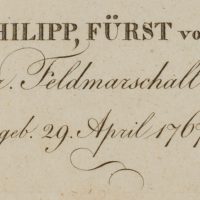 HILIPP, FÜRST vo
r. Feldmarschall
geb. 29. April 1767